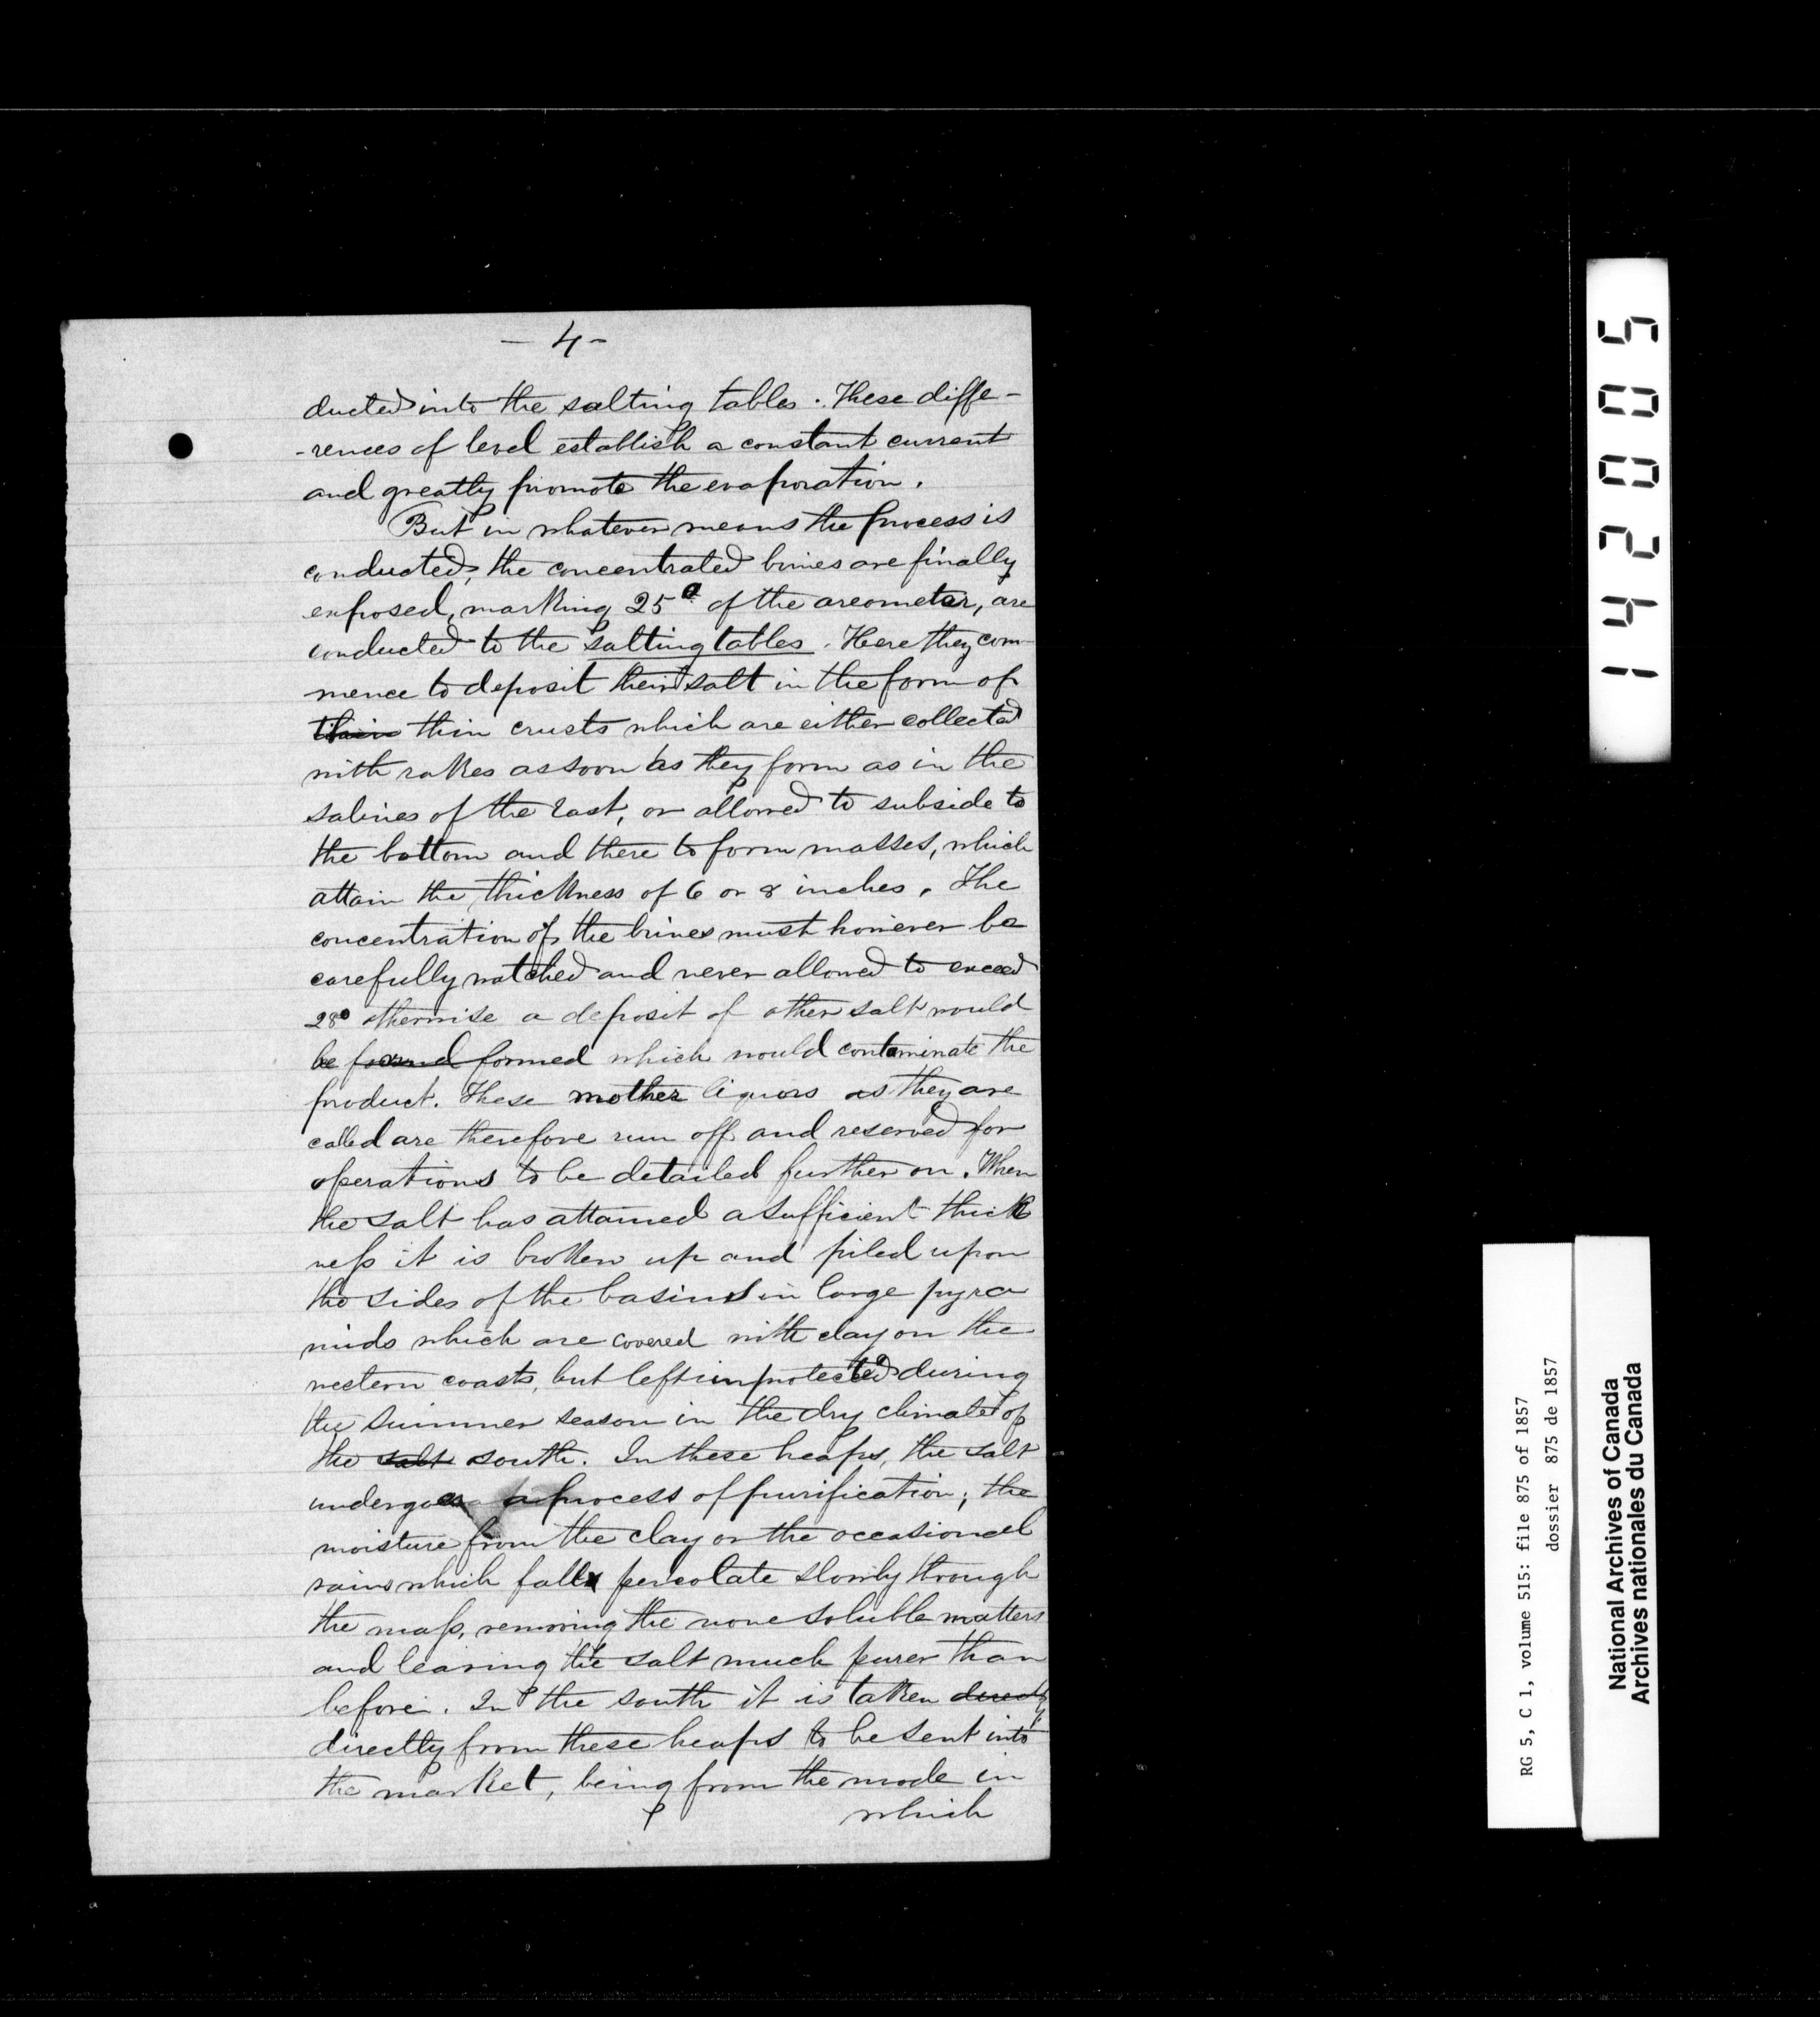 - 4 -
ducted into the salting tables. These diffe-
-rences of level establish a constant current
and greatly promote the evaporation.
But in whatever means the process is
conducted, the concentrated brines are finally
exposed, marking 25° of the areometer, are
conducted to the salting tables. Here they com-
mence to deposit their salt in the form of
their thin crusts which are either collected
with rakes as soon as they form as in the
salines of the east, or allowed to subside to
the bottom and there to form masses, which
attain the thickness of 6 or 8 inches. The
concentration of the brines must however be
carefully watched and never allowed to exceed
28° otherwise a deposit of other salt would
be found formed which would contaminate the
product. These mother liquors as they are
called are therefore run off and reserved for
operations to be detailed further on. When
the salt has attained a sufficient thick
ness it is broken up and piled upon
the sides of the basins in large pyra
mids which are covered with clay on the
western coasts, but left unprotected during
the summer season in the dry climate of
the salt south. In these heaps, the salt
undergoes a process of purification; the
moisture from the clay or the occasional
rains which fall percolate slowly through
the mass, removing the more soluble matters
and leaving the salt much purer than
before. In the south it is taken directly
directly from these heaps to be sent into
the market, being from the mode in
which
142005
RG 5, C 1, volume 515: file 875 of 1857
dossier 875 de 1857
National Archives of Canada
Archives nationales du Canada